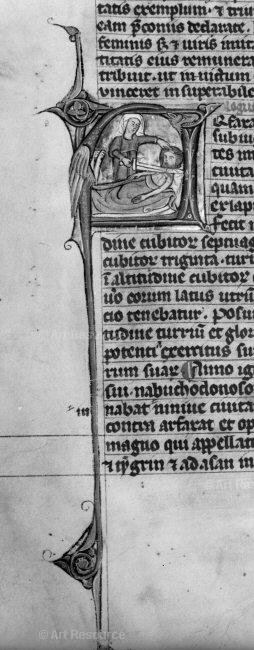 tatis exemplum. ⁊ triu
eam p̄coniis declarate.
feminis sꝫ ⁊ uiris imita
titatis eius remunera
tribuit. ut inuictum
uinceret in superabile
A
rfara
subiu
tes im
ciuita
quam
ex lap
fecit
dine cubitoꝝ septuag
cubitoꝝ triginta. turr
ī altitudine cubitoꝝ c
uo eorum latus utru
cio tenebatur. Posui
tudine turriū et glor
potenti exercitus su
rum suaꝝ Anno ig
sui. nabuchodonoso
in
nabat niniue ciuita
contra arfarat et op
magno qui appellat
⁊ tygrin ⁊ adasan in
© Art Resource